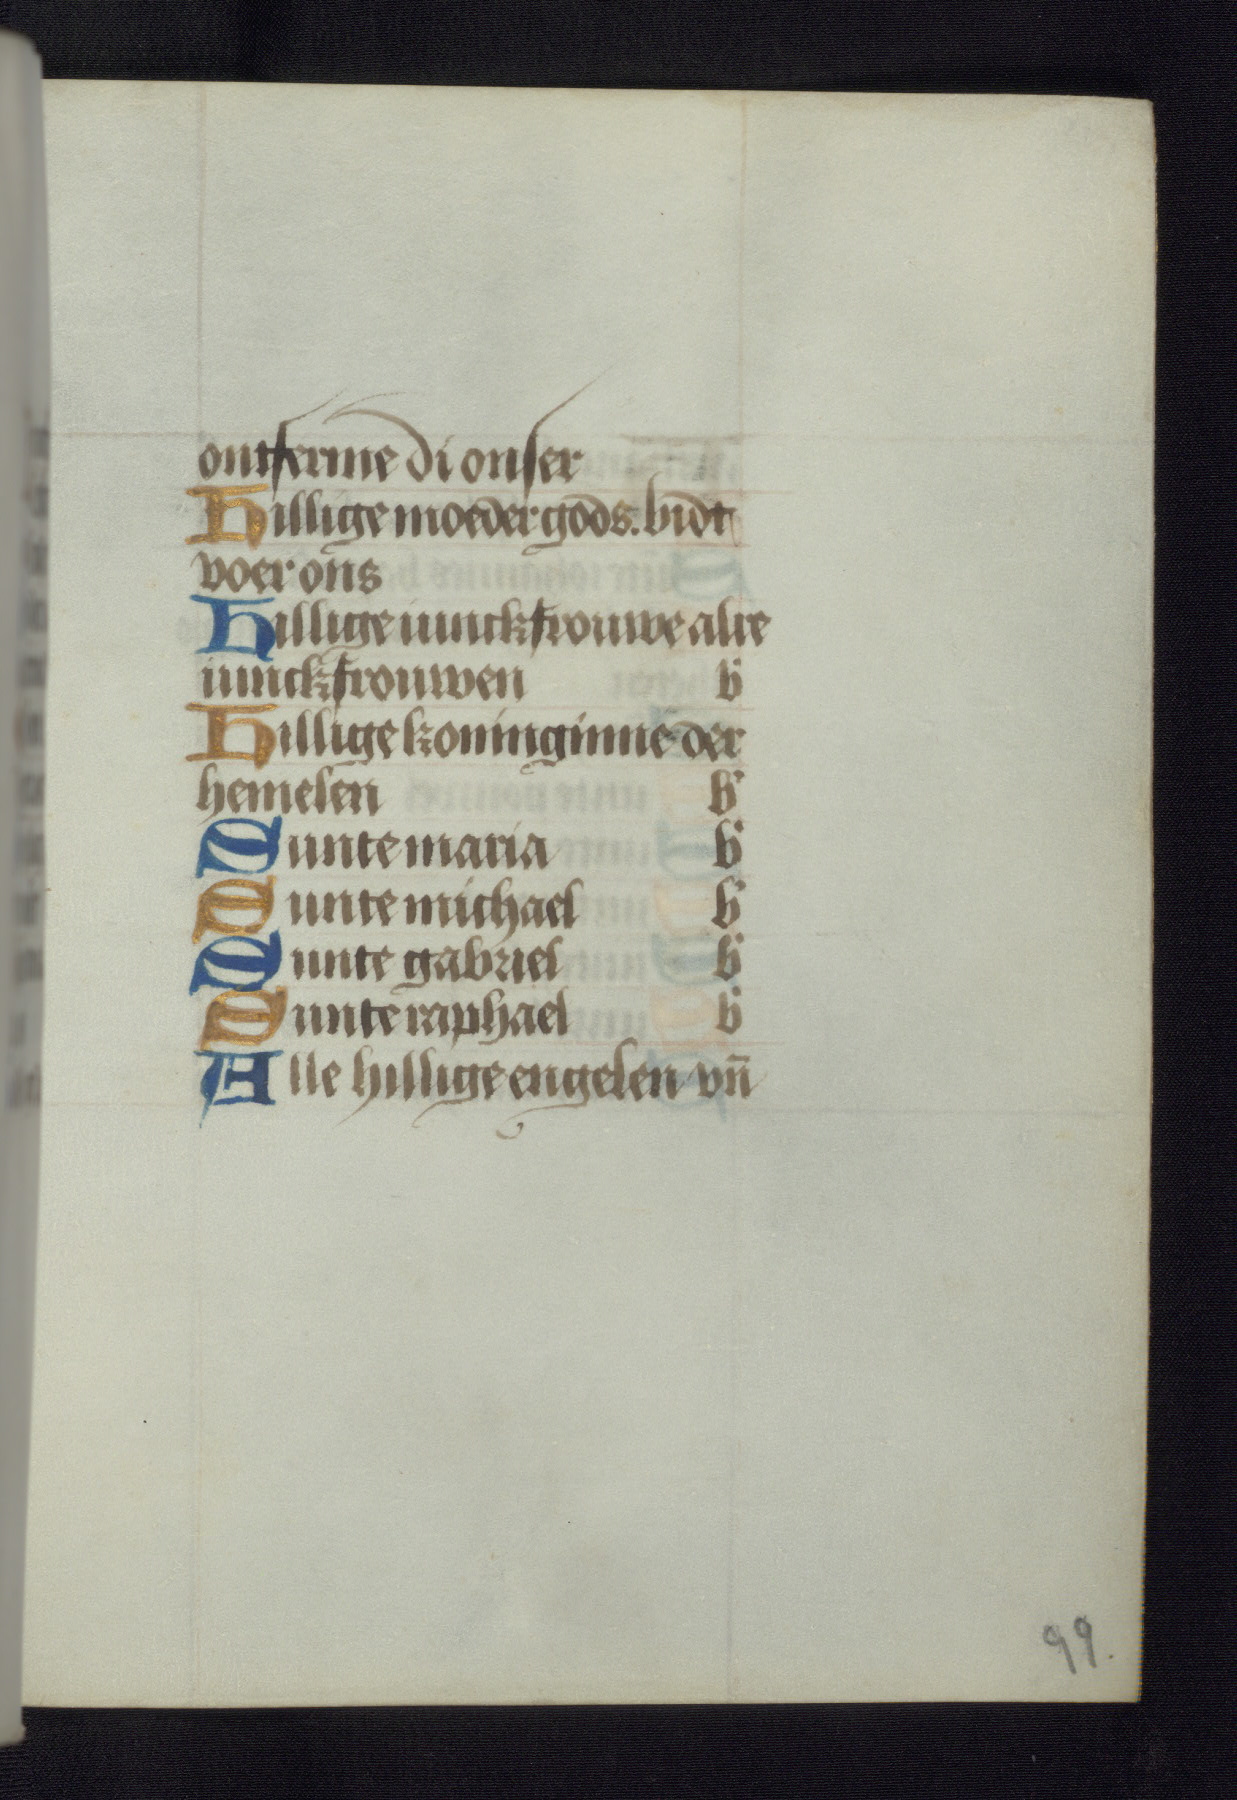 ontferme di onser
Hillige moeder gods. bidt
voer ons
Hillige iunckfrouwe alre
iunckfrouwen b
Hillige koninginne der
hemelen b
Sunte maria b
Sunte michael b
Sunte gabriel b
Sunte raphael b
Alle hillige engelen vn̄
99.